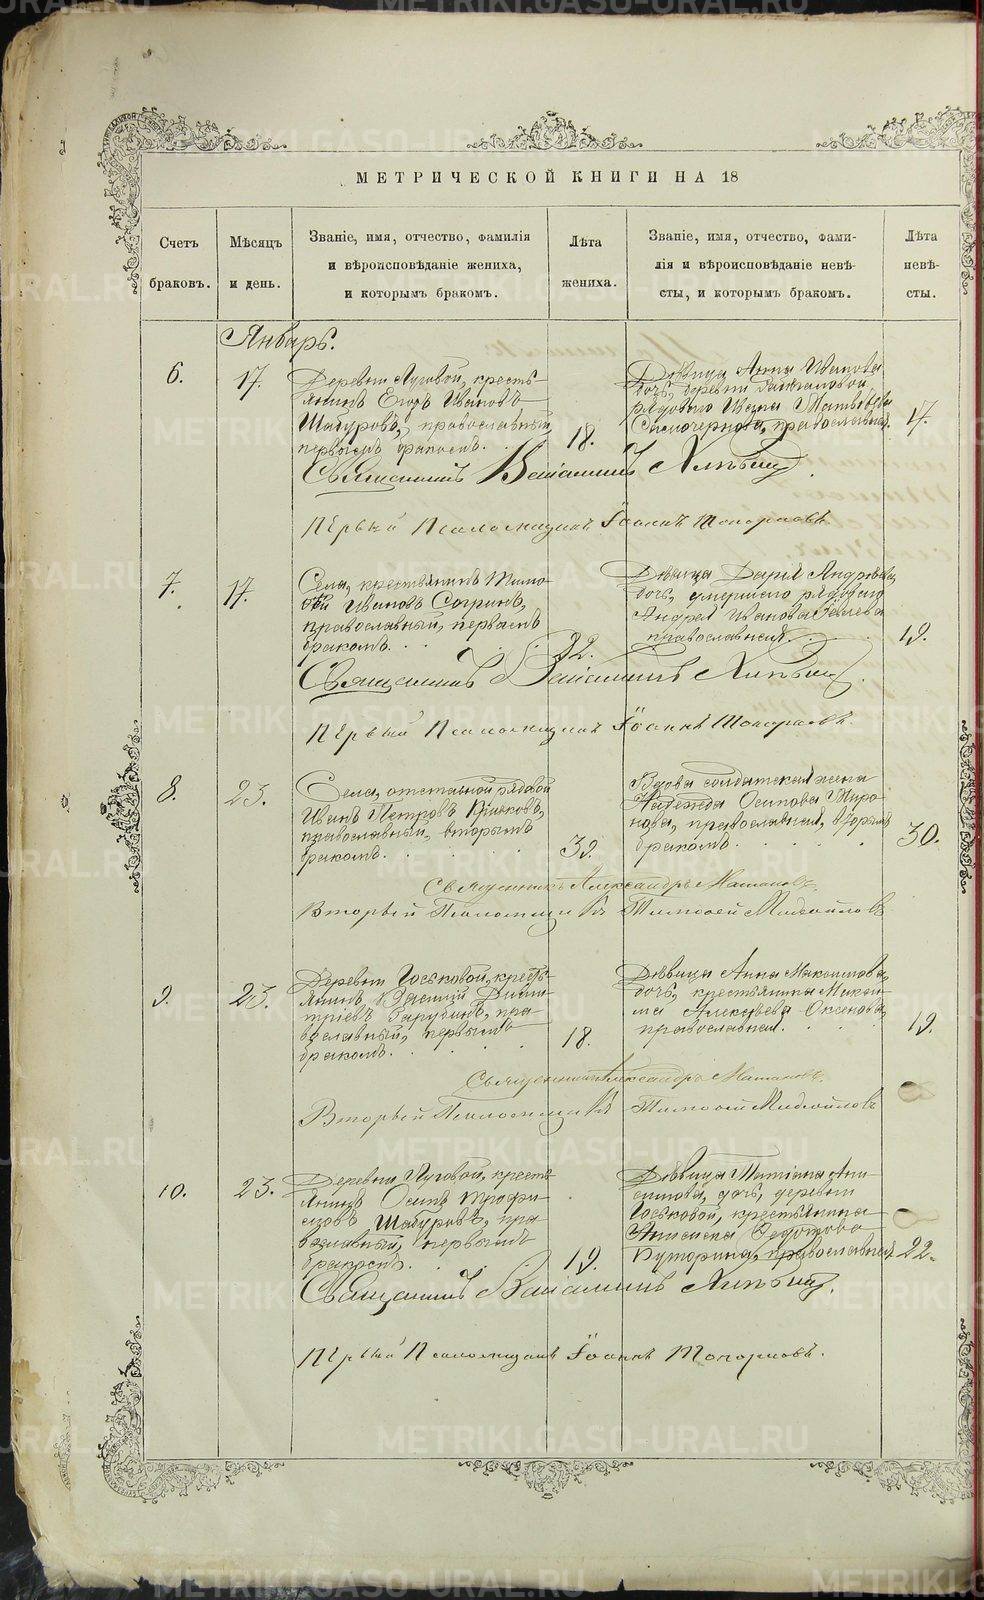 МЕТРИЧЕСКОЙ КНИГИ НА 18
Счетъ браковъ.
Мѣсяцъ и день.
Званіе, имя, отчество, фамилія
и вѣроисповѣданіе жениха,
и которымъ бракомъ.
Лѣта жениха.
Званіе, имя, отчество, фами-
лія и вѣроисповѣданіе невѣ-
сты, и которымъ бракомъ.
Лѣта невѣ-
сты.
Январь.
6.
17.
Деревни Луговой, кресть-
янинъ Егоръ Ивановъ
Шабуровъ, православный,
первымъ бракомъ.
18.
Дѣвица Анна Иванова
дочь, деревни
рядового Ивана Матвѣева
православная.
17.
Священникъ Веніаминъ
Первый Псаломщикъ Іоаннъ Топорковъ
7.
17.
Села, крестьянинъ Тимо-
ѳей Ивановъ Согринъ,
православный, первымъ
бракомъ.
22.
Дѣвица Дарія Андреева,
дочь, умершего рядового
Андрея Иванова
православная.
19.
Священникъ Веніаминъ
Первый Псаломщикъ Іоаннъ Топорковъ.
8.
23.
Села, отставной рядовой
Иванъ Петровъ
православный, вторымъ
бракомъ.
39.
Вдова солдатская жена
Надежда Осипова Миро-
нова, православная, вторымъ
бракомъ.
30.
Священникъ Александръ
Второй Псаломщикъ Тимоѳей Михайловъ
9.
23.
Деревни Госьковой, кресть-
янинъ, Василій Димит-
ріевъ Зарубинъ, пра-
вославный, первымъ
бракомъ.
18.
Дѣвица Анна Максимова,
дочь, крестьянина Макси-
ма Алексѣева Оксенова,
православная.
19.
Священникъ Александръ
Второй Псаломщикъ Тимоѳей Михайловъ
10.
23.
Деревни Луговой, кресть-
янинъ Осипъ Трофи-
мовъ Шабуровъ, пра-
вославный, первымъ
бракомъ.
19.
Дѣвица Татіана Ани-
симова, дочь, деревни
Госьковой, крестьянина
Анисима Федотова
Буторина, православная.
22.
Священникъ Веніаминъ
Первый Псаломщикъ Іоаннъ Топорковъ.
METRIKI.GASO-URAL.RU